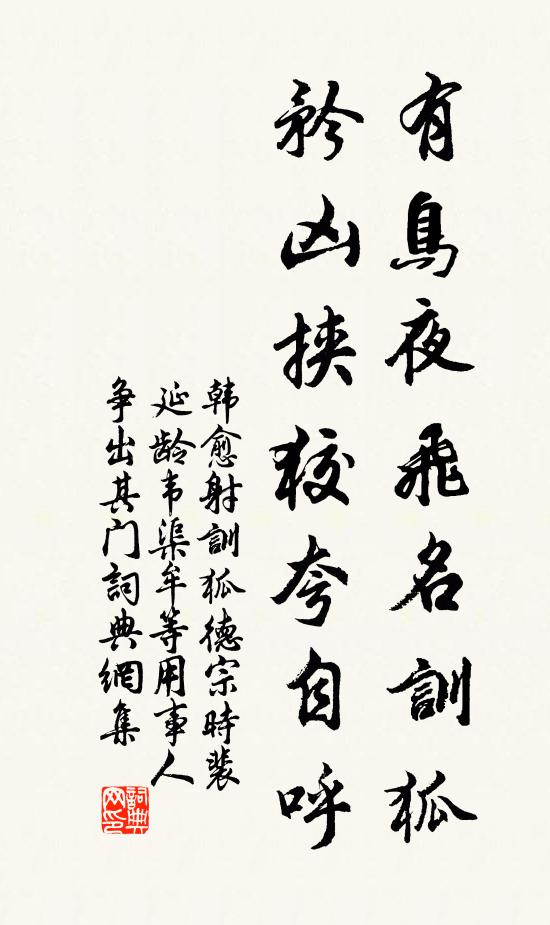 有鳥夜飛名訓狐
矜凶挾狡夸自呼
韩愈射訓狐德宗時裴
延龄韦渠牟等用事人
争出其门詞典網集
詞典网印